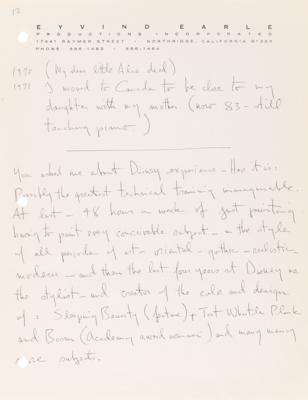 12
EYVIND EARLE
PRODUCTIONS INCORPORATED
17441 RAYMER STREET · NORTHRIDGE, CALIFORNIA 91324
1970 (My dear little Alice died)
1971 I moved to Canada to be close to my
daughter with my mother (now 83 - still
teaching piano)
You asked me about Disney experience - Here it is:
Possibly the greatest technical training imaginable.
At last - 48 hours a week of just painting
having to paint every conceivable subject - in the style
of all periods of art - oriental - gothic - realistic -
modern - and then the last four years at Disney as
the stylist - and creator of the color and design
of: Sleeping Beauty (feature) + Toot Whistle Plunk
and Boom (Academy award winner) and many many
more subjects.